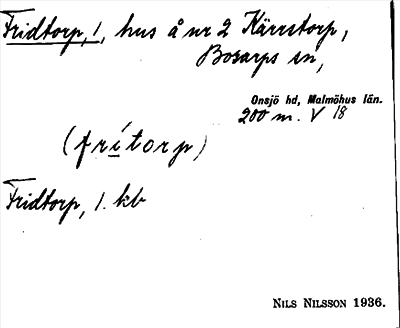 Fridtorp, 1, hus å nr 2 Kärrstorp,
Bosarps sn,
Onsjö hd, Malmöhus län.
200 m. V 18
(frítorp)
Fridtorp, 1. kb
NILS NILSSON 1936.